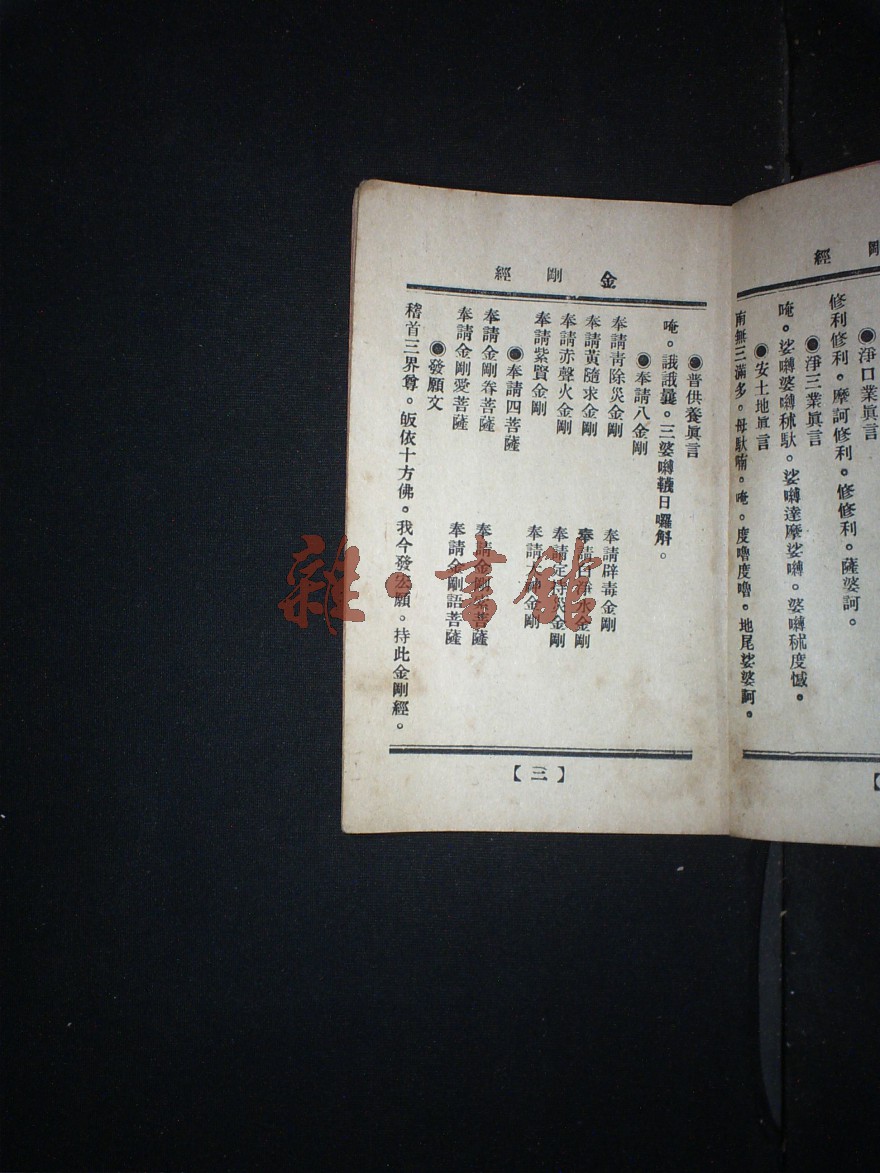 剛 經
●淨口業眞言
修利修利。摩訶修利。修修利。薩婆訶。
●淨三業眞言
唵。娑嚩婆嚩秫馱。娑嚩達摩娑嚩。婆嚩秫度憾。
●安土地眞言
南無三滿多。母馱喃。唵。度嚕度嚕。地尾娑婆訶。
金 剛 經
●普供養眞言
唵。誐誐曩。三婆嚩韈日囉斛。
●奉請八金剛
奉請靑除災金剛 奉請辟毒金剛
奉請黃隨求金剛 奉請白淨水金剛
奉請赤聲火金剛 奉請定持災金剛
奉請紫賢金剛 奉請大神金剛
●奉請四菩薩
奉請金剛眷菩薩 奉請金剛索菩薩
奉請金剛愛菩薩 奉請金剛語菩薩
●發願文
稽首三界尊。皈依十方佛。我今發宏願。持此金剛經。
【三】
雜·書館